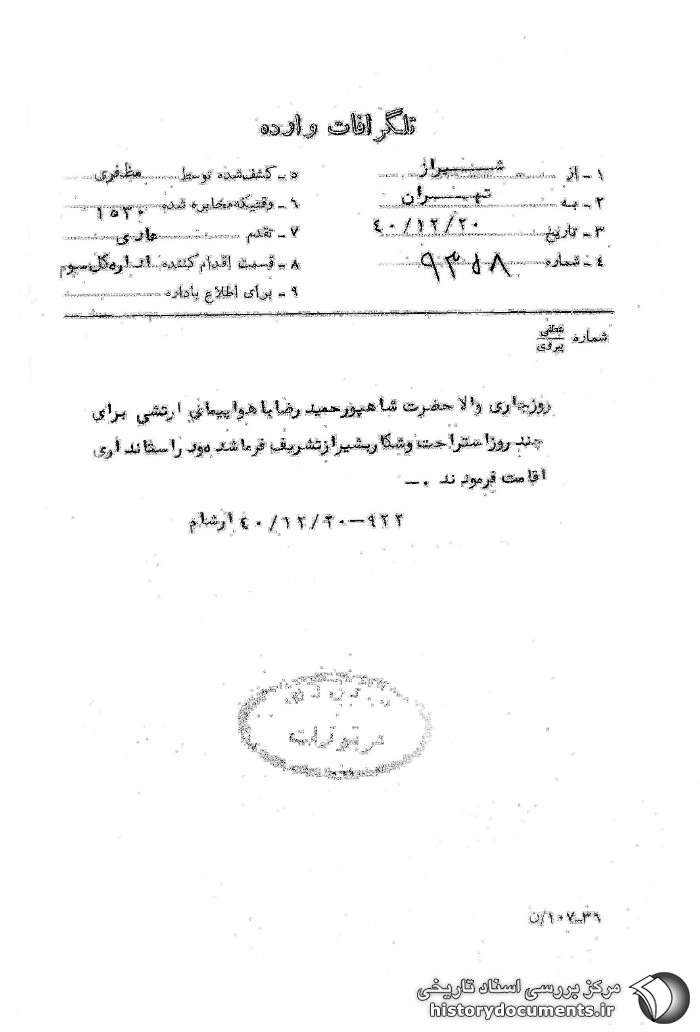 تلگرافات وارده
۱ - از شیراز
۲ - به تهران
۳ - تاریخ ۴۰/۱۲/۲۰
۴ - شماره ۹۳۵۸
۵ - کشف شده توسط مظفری
۶ - وقتیکه مخابره شده ۱۵۳۰
۷ - تقدم عادی
۸ - قسمت اقدام کننده اداره کل سوم
۹ - برای اطلاع باداره
شماره عطفی
پیروی
روزجاری والا حضرت شاهپور حمید رضا با هواپیمای ارتشی برای
چند روز استراحت و شکار بشیراز تشریف فرما شد ه ود راستاند اری
اقامت فرمود ند . —
۹۲۲—۴۰/۱۲/۲۰ ارشام
۱۰۷-۳۶/ن
مرکز بررسی اسناد تاریخی
historydocuments.ir